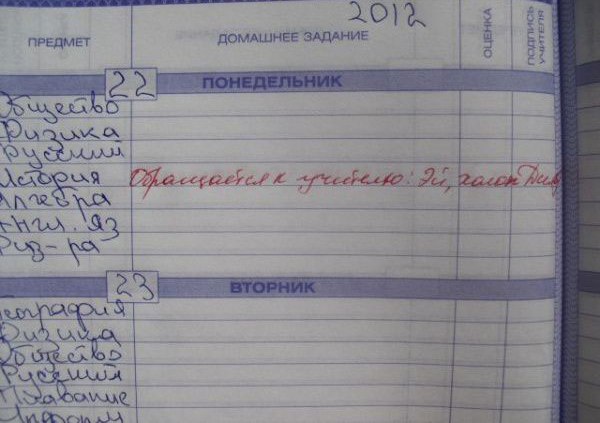 2012
ПРЕДМЕТ ДОМАШНЕЕ ЗАДАНИЕ ОЦЕНКА ПОДПИСЬ УЧИТЕЛЯ
22 ПОНЕДЕЛЬНИК
Общество
Физика
Русский
История Обращается к учителю: Эй, холоп
Алгебра
Англ. яз
Физ-ра
23 ВТОРНИК
География
Физика
Общество
Русский
Плавание
Информ